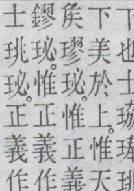 下也士
下美於上。惟天
矦璆珌。惟正義
鏐珌。惟正義作
士珧珌。正義作